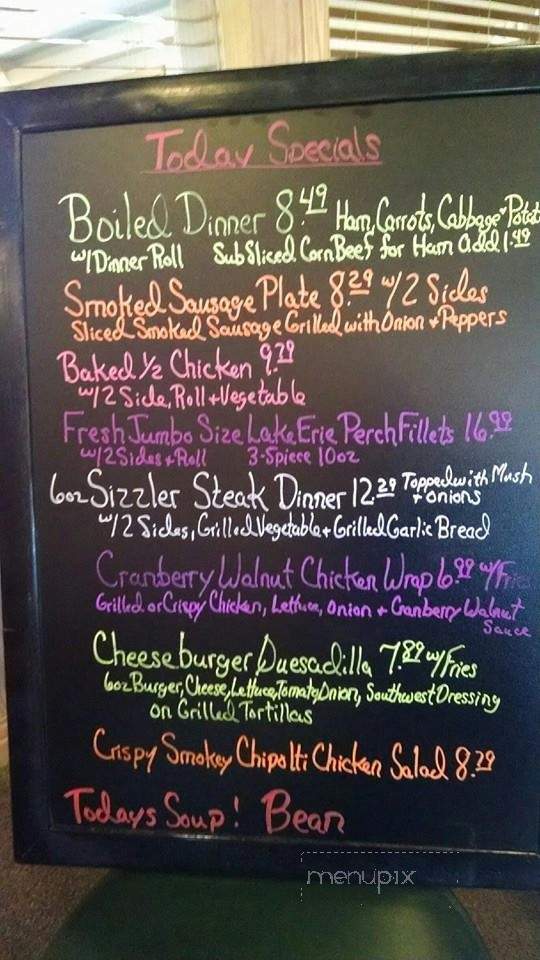 Today Specials
Boiled Dinner 8.49 Ham, Carrots, Cabbage + Potat
w/ Dinner Roll Sub Sliced Corn Beef for Ham add 1.99
Smoked Sausage Plate 8.29 w/ 2 Sides
Sliced Smoked Sausage Grilled with Onion + Peppers
Baked 1/2 Chicken 9.29
w/ 2 Side, Roll + Vegetable
Fresh Jumbo Size Lake Erie Perch Fillets 16.99
w/ 2 Sides + Roll 3-5 piece 10oz
6oz Sizzler Steak Dinner 12.29 Topped with Mush
+ onions
w/ 2 Sides, Grilled Vegetable + Grilled Garlic Bread
Cranberry Walnut Chicken Wrap 6.99 w/ Fries
Grilled or Crispy Chicken, Lettuce, Onion + Cranberry Walnut
Sauce
Cheeseburger Quesadilla 7.89 w/ Fries
6oz Burger, Cheese, Lettuce, Tomato, Onion, Southwest Dressing
on Grilled Tortillas
Crispy Smokey Chipolti Chicken Salad 8.29
Todays Soup! Bean
menupix